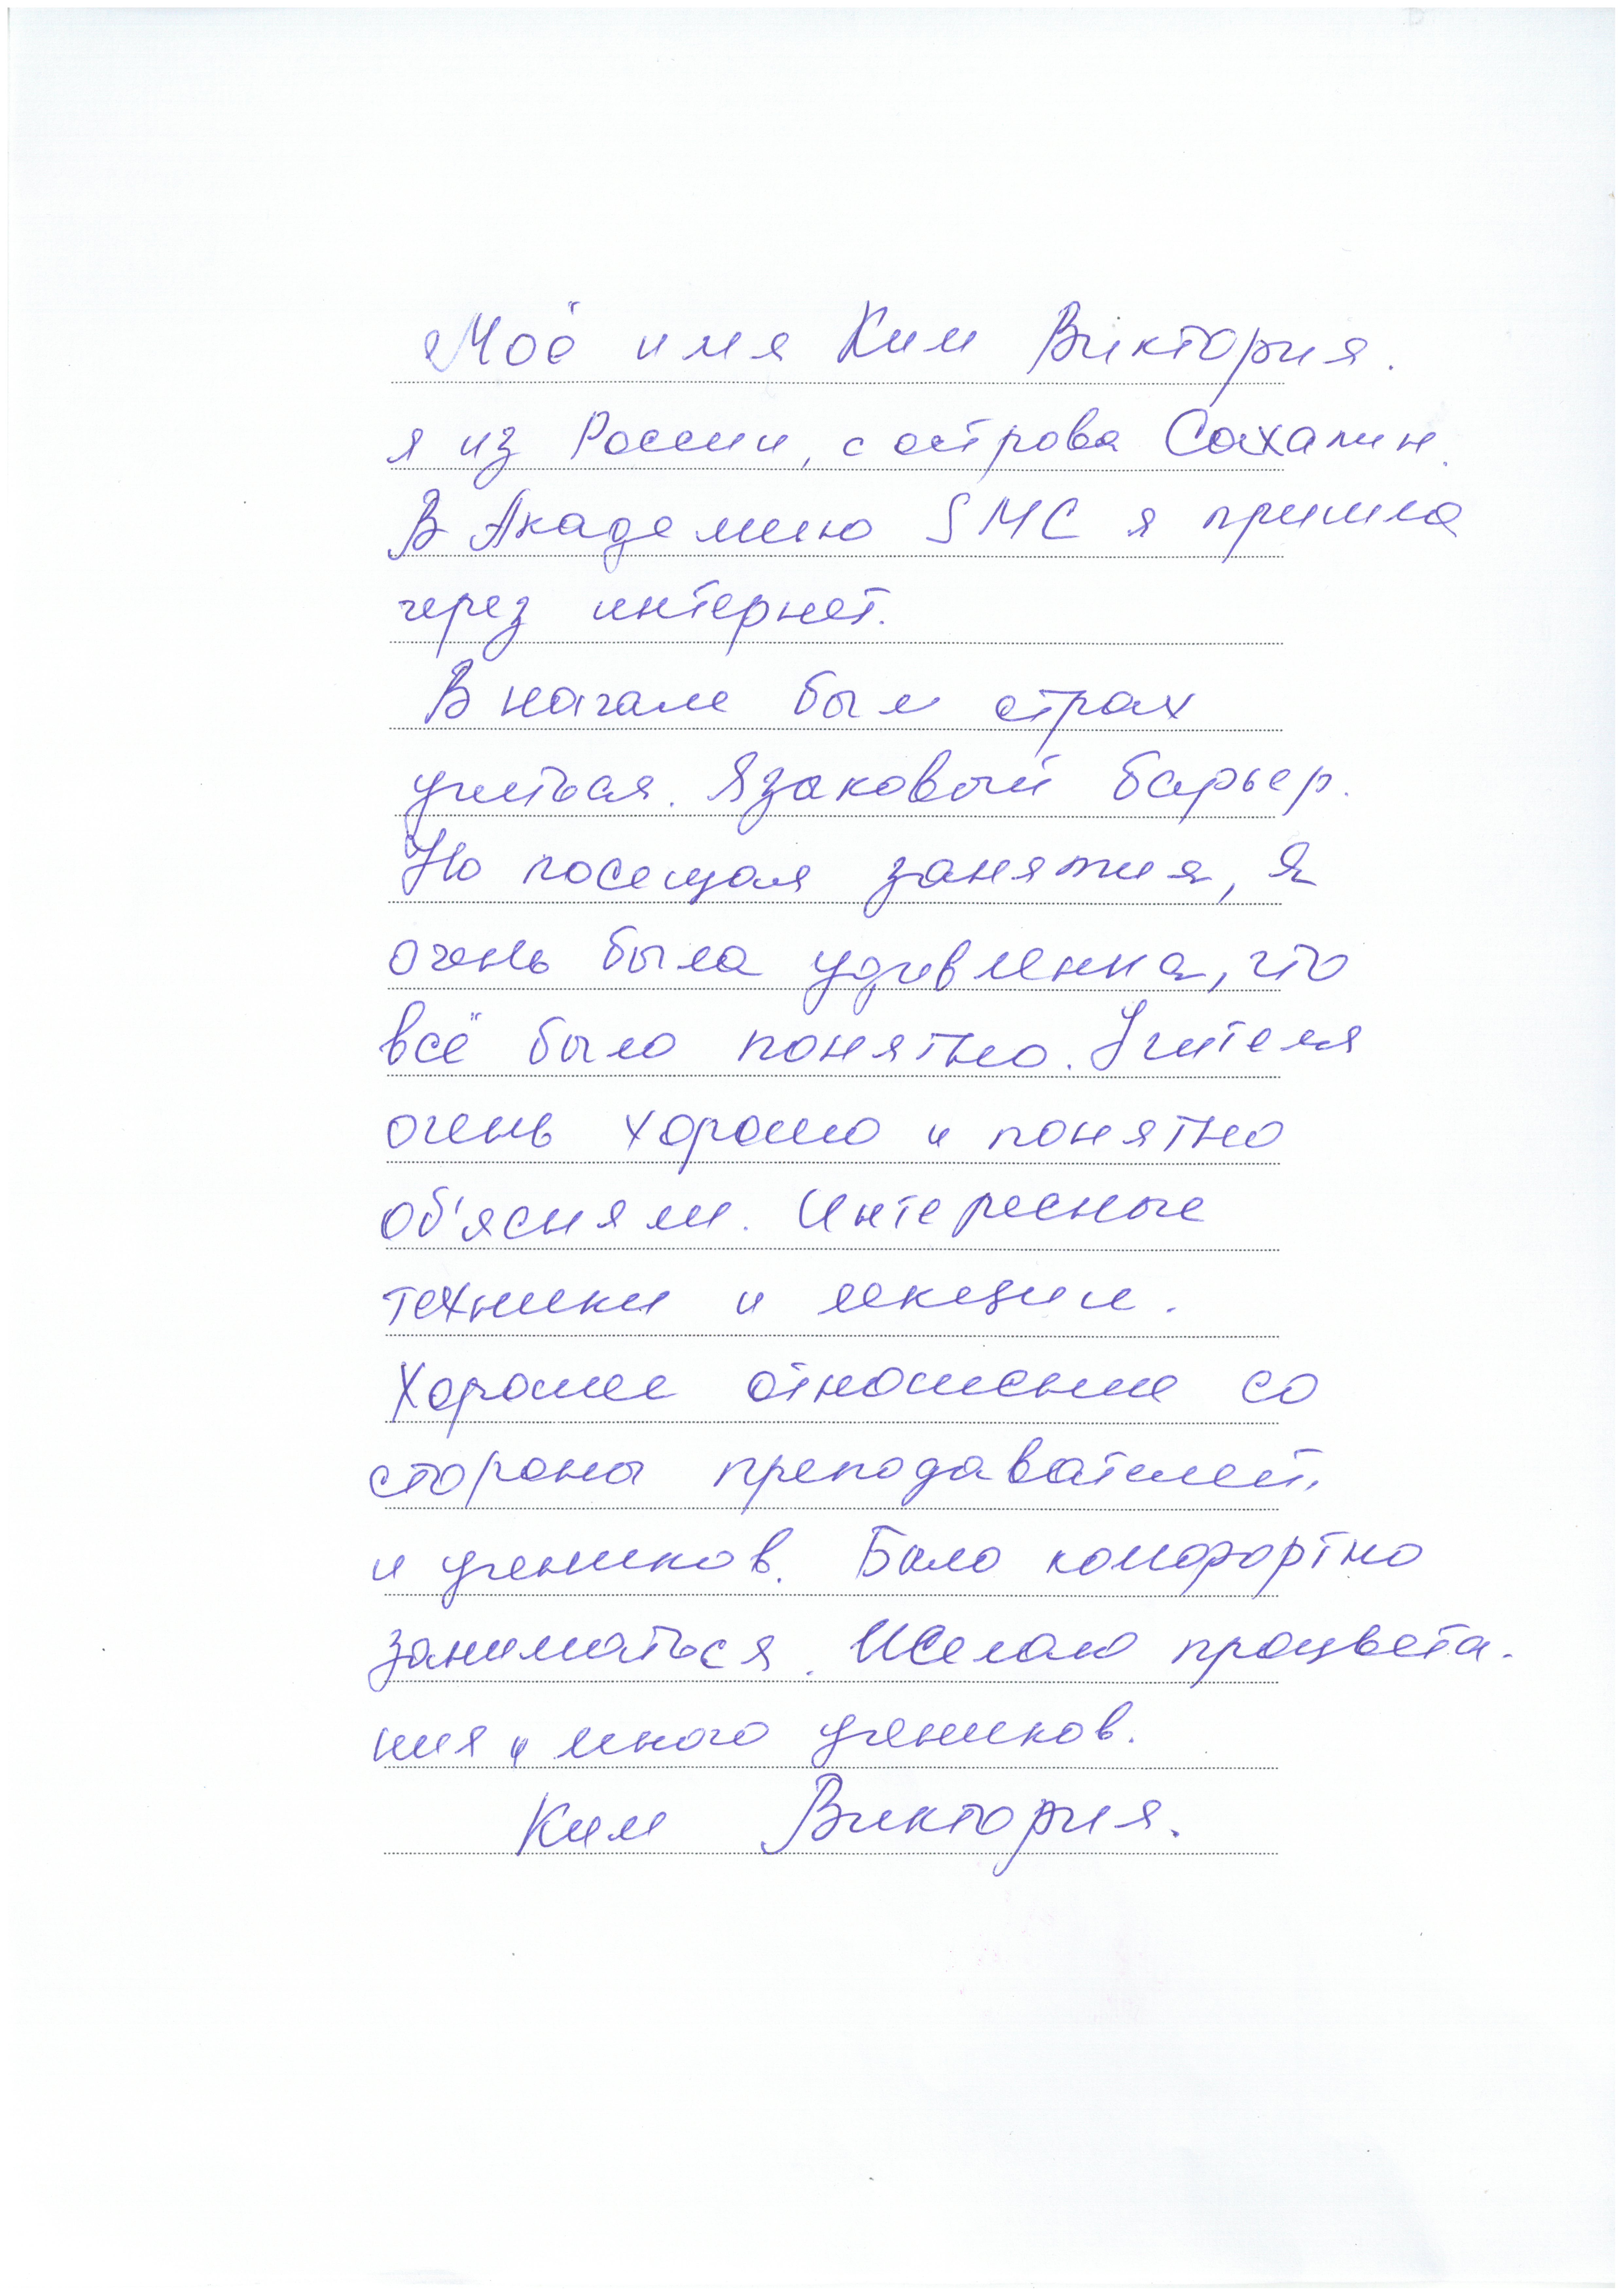 Моё имя Ким Виктория.
я из России, с острова Сахалин.
В Академию SMC я пришла
через интернет.
В начале был страх
учиться. Языковый барьер.
Но посещая занятия, я
очень была удивленна, что
всё было понятно. Учителя
очень хорошо и понятно
об'ясняли. Интересные
техники и лекции.
Хорошее отношение со
стороны преподавателей,
и учеников. Было комфортно
заниматься. Желаю процвета-
ния и много учеников.
Ким Виктория.